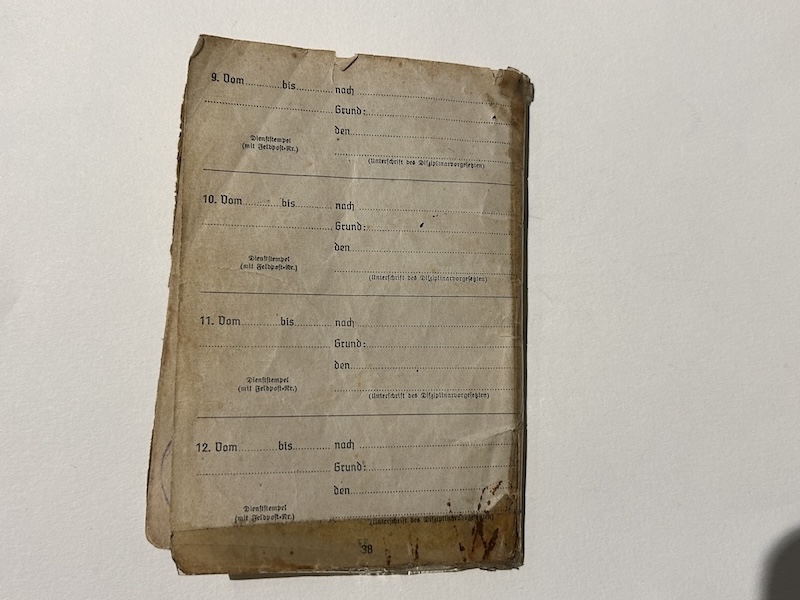 9. Vom.........bis.......... nach
Grund:
den
Dienststempel
(mit Feldpost-Nr.)
(Unterschrift des Disziplinarvorgesetzten)
10. Vom.........bis.......... nach
Grund:
den
Dienststempel
(mit Feldpost-Nr.)
(Unterschrift des Disziplinarvorgesetzten)
11. Vom.........bis.......... nach
Grund:
den
Dienststempel
(mit Feldpost-Nr.)
(Unterschrift des Disziplinarvorgesetzten)
12. Vom.........bis.......... nach
Grund:
den
Dienststempel
(mit Feldpost-Nr.)
(Unterschrift des Disziplinarvorgesetzten)
38